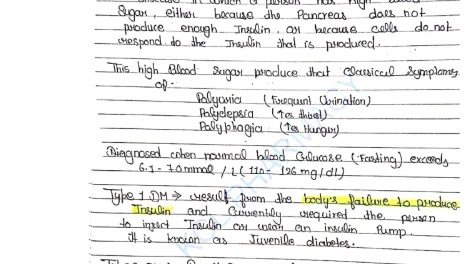 Sugar, either because the Pancreas does not
produce enough Insulin, or because cells do not
respond to the Insulin that is produced.
This high Blood Sugar produce that Classical Symptoms
of -
Polyuria (Frequent Urination)
Polydepsia (↑es thirst)
Polyphagia (↑es Hunger)
Diagnosed when normal blood Glucose (Fasting) exceeds
6.1 - 7.0 mmol / L (110 - 126 mg/dL)
Type 1 DM → result from the body's failure to produce
Insulin and Currently required the person
to inject Insulin or wear an insulin Pump.
it is known as Juvenile diabetes.